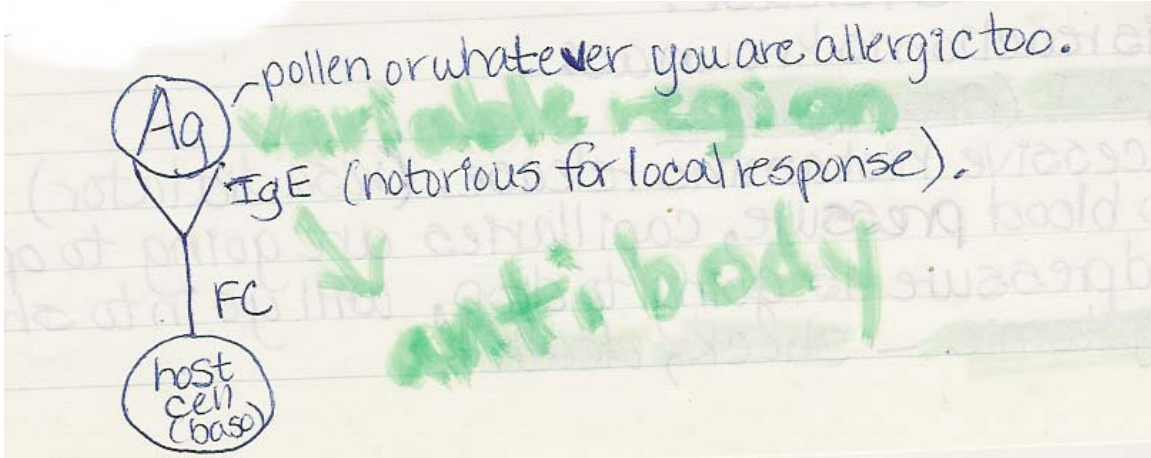 pollen or whatever you are allergic too.
Ag
variable region
IgE (notorious for local response).
anti body
FC
host
cell
(baso)